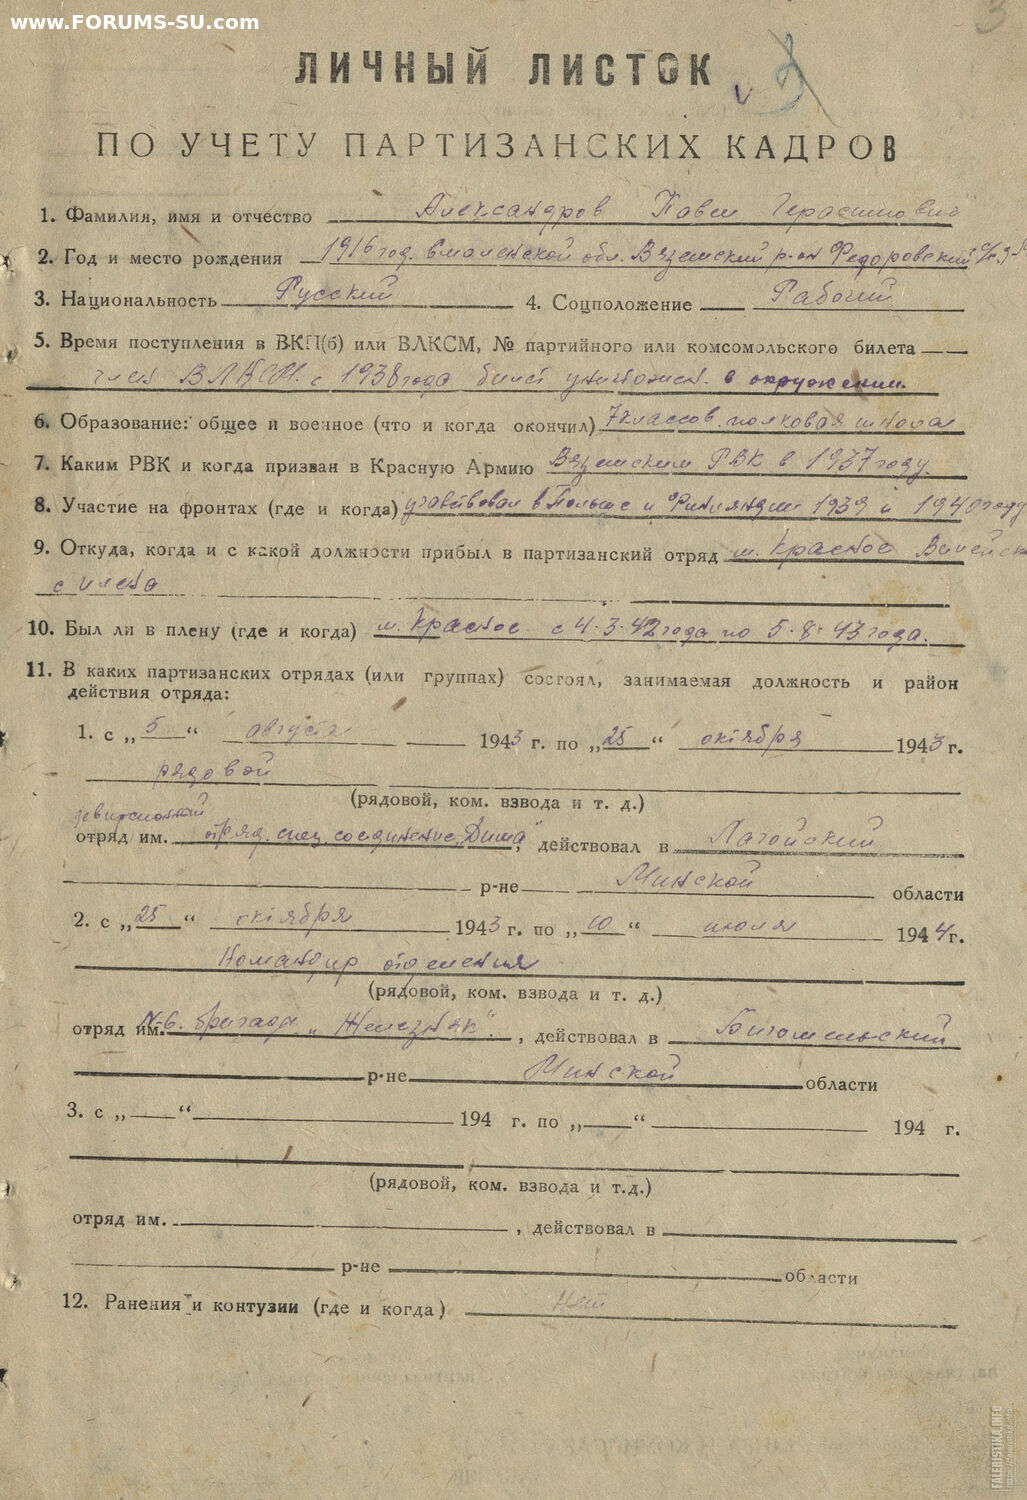 www.FORUMS-SU.com
3
ЛИЧНЫЙ ЛИСТОК
ПО УЧЕТУ ПАРТИЗАНСКИХ КАДРОВ
1. Фамилия, имя и отчество Александров Павел Герасимович
2. Год и место рождения 1916 год. Смоленской обл. Вяземский р-он Федоровский
3. Национальность Русский 4. Соцположение Рабочий
5. Время поступления в ВКП(б) или ВЛКСМ, № партийного или комсомольского билета
член ВЛКСМ. с 1938 года билет уничтожен. в окружении.
6. Образование: общее и военное (что и когда окончил) 7 классов. полковая школа
7. Каким РВК и когда призван в Красную Армию Вяземским РВК в 1937 году.
8. Участие на фронтах (где и когда) участвовал в Польше и Финляндии 1939 и 1940 году
9. Откуда, когда и с какой должности прибыл в партизанский отряд м. Красное Вилейск
с плена
10. Был ли в плену (где и когда) м. Красное с 4.3.42 года по 5.8.43 года.
11. В каких партизанских отрядах (или группах) состоял, занимаемая должность и район
действия отряда:
1. с „5“ августа 1943 г. по „25“ октября 1943 г.
рядовой
(рядовой, ком. взвода и т. д.)
отряд им. отряд. спец. соединение „Дима“, действовал в Лагойский
р-не Минской области
2. с „25“ октября 1943 г. по „10“ июля 1944 г.
Командир отделения
(рядовой, ком. взвода и т. д.)
отряд им. №6. бригады „Железняк“. , действовал в Бигомельский
р-не Минской области
3. с „ “ 194 г. по „ “ 194 г.
(рядовой, ком. взвода и т.д.)
отряд им. , действовал в
р-не области
12. Ранения и контузии (где и когда) Нет
FALERISTIKA.INFO